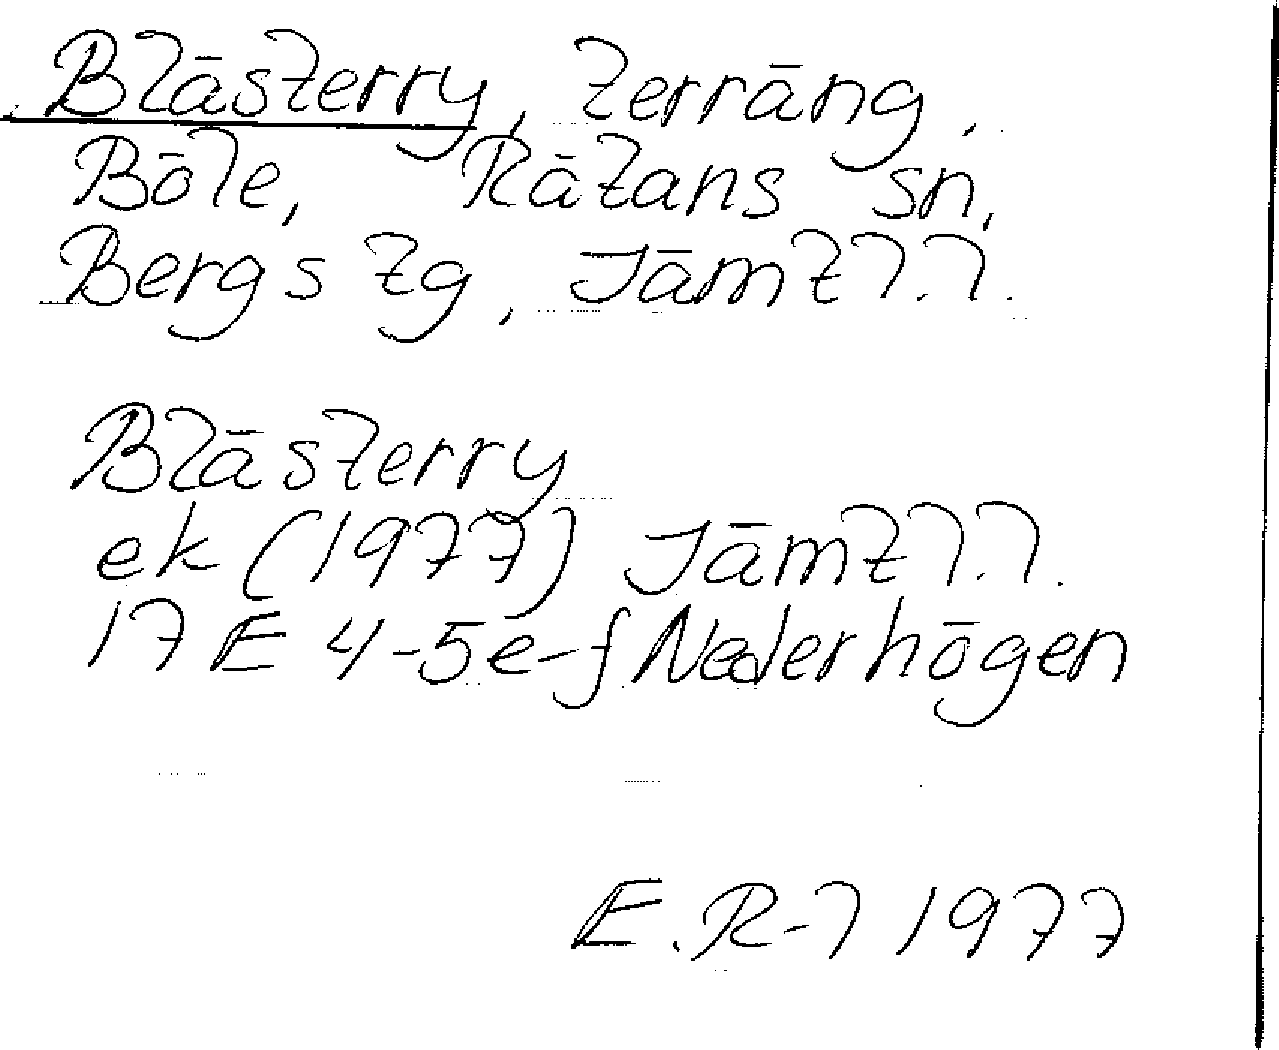 Blästerry, terräng,
Böle, Rätans sn,
Bergs tg, Jämtl.l.
Blästerry
ek (1977) Jämtl.l.
17 E 4-5 e-f Nederhögen
E. R-l 1977